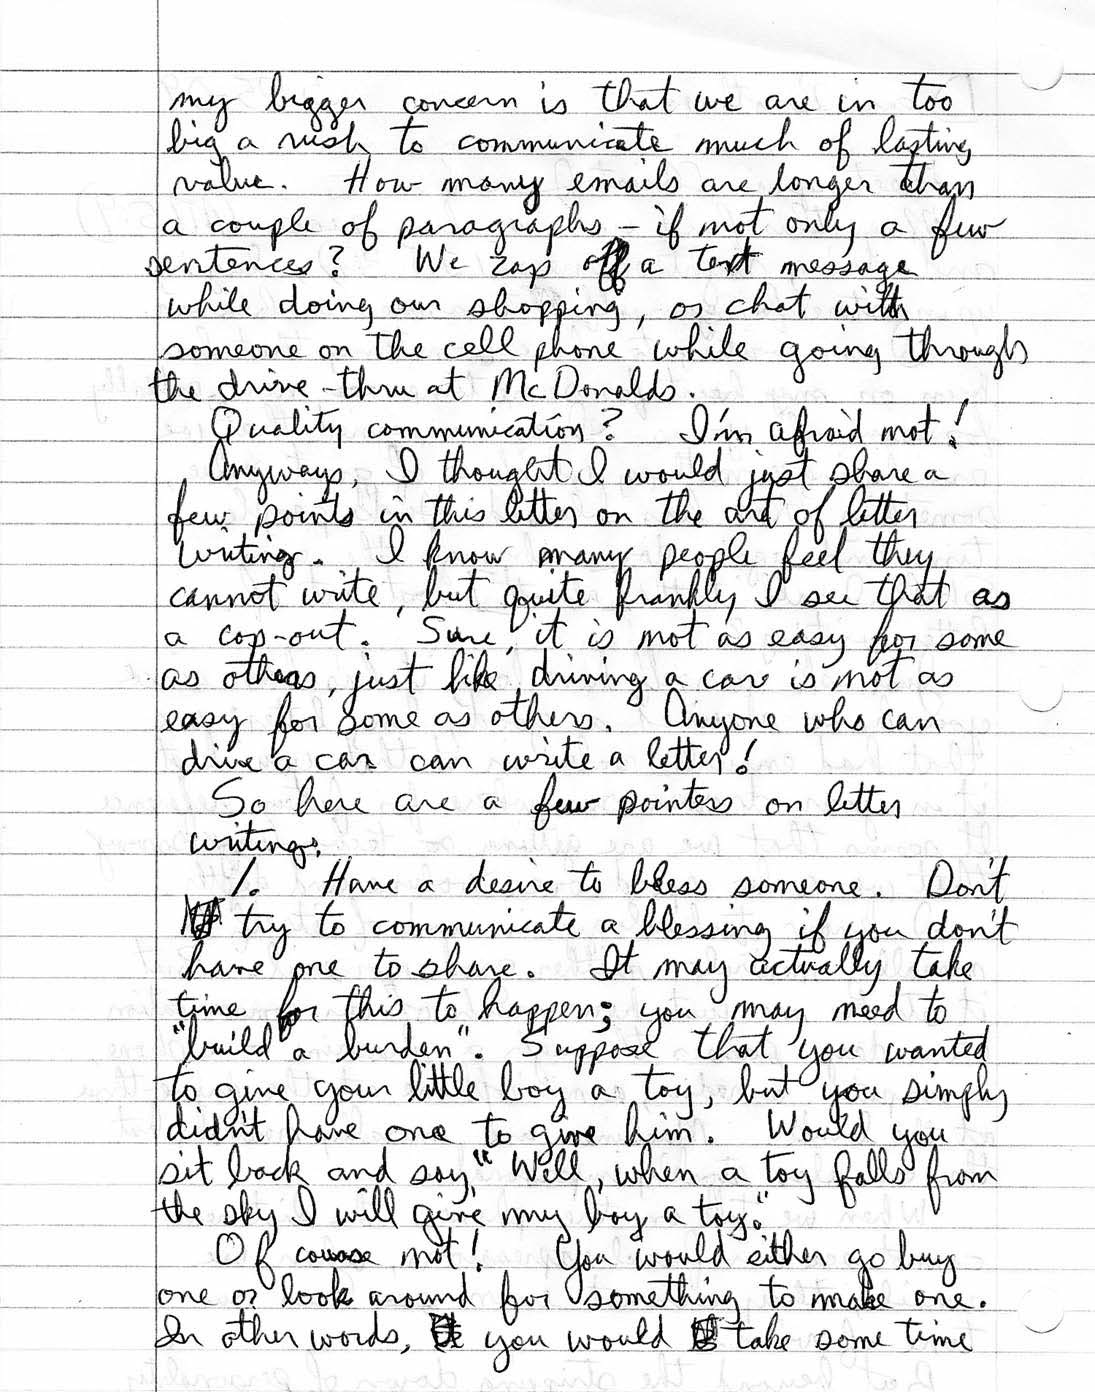 my bigger concern is that we are in too
big a rush to communicate much of lasting
value. How many emails are longer than
a couple of paragraphs - if not only a few
sentences? We zap off a text message
while doing our shopping, or chat with
someone on the cell phone while going through
the drive-thru at McDonalds.
Quality communication? I'm afraid not!
Anyways, I thought I would just share a
few points in this letter on the art of letter
writing. I know many people feel they
cannot write, but quite frankly I see that as
a cop-out. Sure, it is not as easy for some
as others, just like driving a car is not as
easy for some as others. Anyone who can
drive a car can write a letter!
So here are a few pointers on letter
writing:
1. Have a desire to bless someone. Don't
try to communicate a blessing if you don't
have one to share. It may actually take
time for this to happen; you may need to
"build a burden". Suppose that you wanted
to give your little boy a toy, but you simply
didn't have one to give him. Would you
sit back and say, "Well, when a toy falls from
the sky I will give my boy a toy."
Of course not! You would either go buy
one or look around for something to make one.
In other words, you would take some time